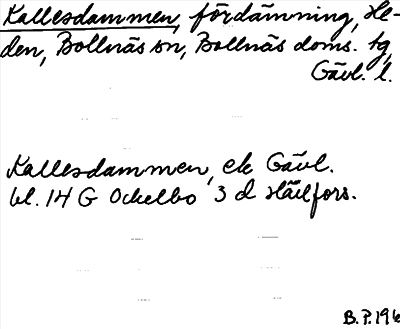 Kallesdammen, fördämning, He-
den, Bollnäs sn, Bollnäs doms. tg,
Gävl. l.
Kallesdammen, ek Gävl.
bl. 14 G Ockelbo 3 d Häilfors.
B.P. 196